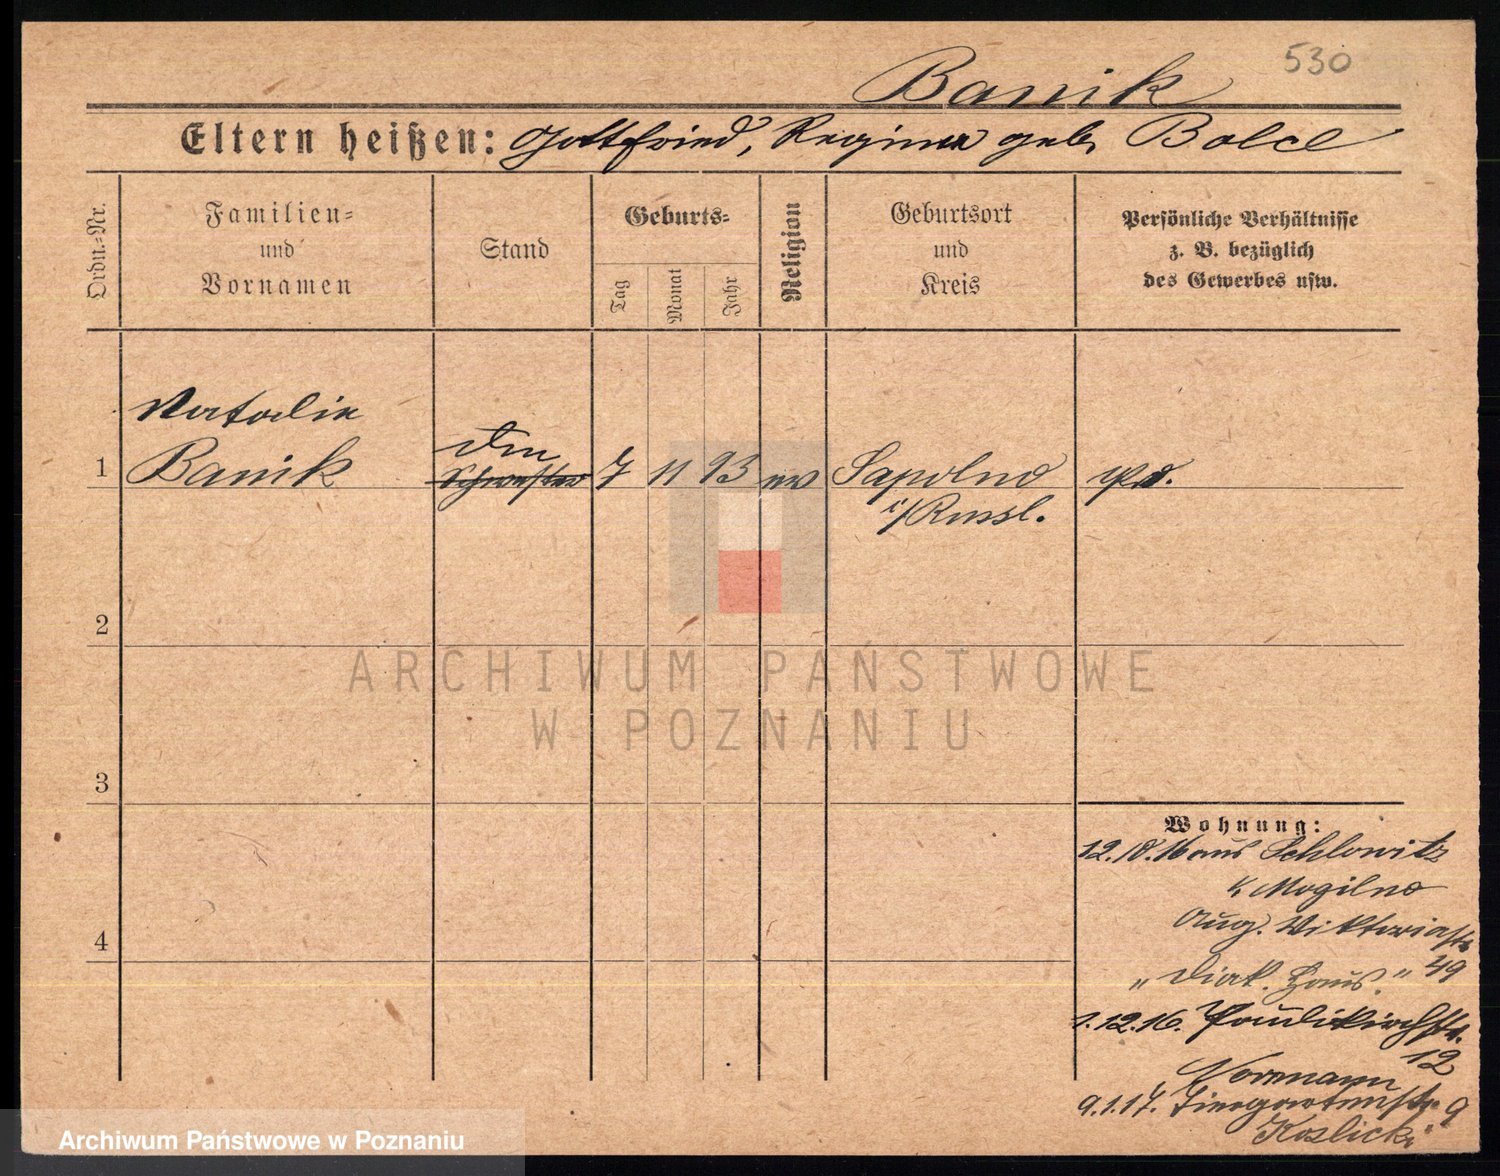 530
Banik
Eltern heißen: Gottfried, Regina geb. Bolcl
Ordn.-Nr.
Familien-
und
Vornamen
Stand
Geburts-
Tag
Monat
Jahr
Religion
Geburtsort
und
Kreis
Persönliche Verhältnisse
z. B. bezüglich
des Gewerbes usw.
Natalie
Banik
1
Schwester
7 11 93 ev
Sapolno
i/Russl.
2
3
4
ARCHIWUM PAŃSTWOWE
W POZNANIU
Wohnung:
12.10.16 aus Schlowitz
Mogilno
Aug. Viktoriastr
"Diak. Haus." 49
1.12.16. Paulikirchstr.
12
Normann
9.1.17. Tiergartenstr. 9
Koslicki
Archiwum Państwowe w Poznaniu